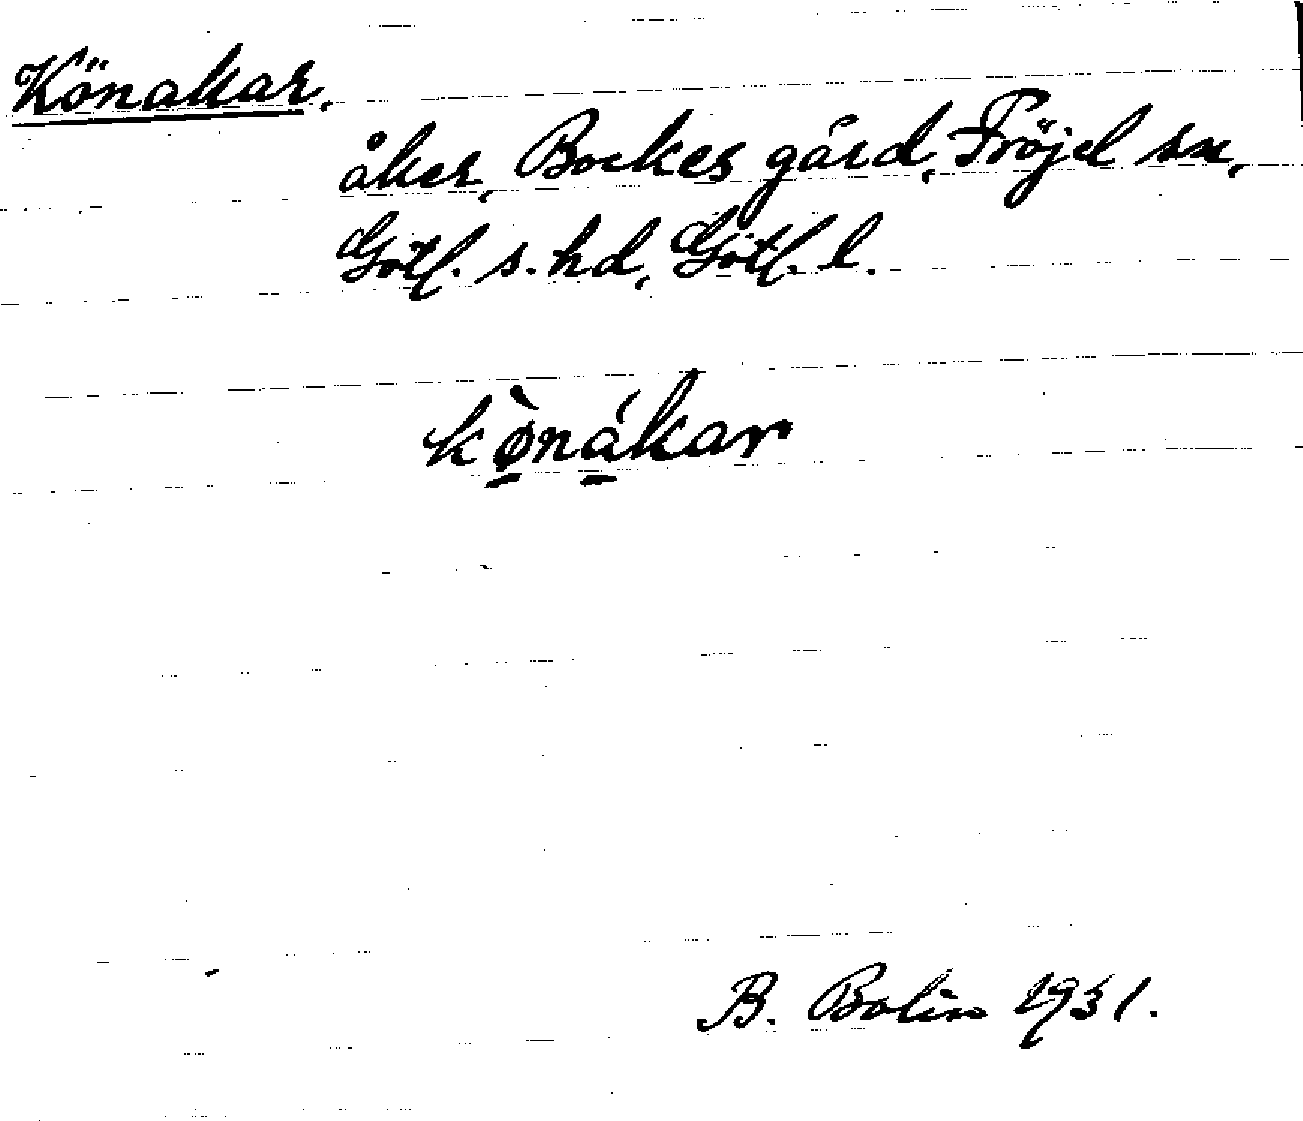 Könakar.
åker, Bockes gård, Fröjel sn,
Gotl. s. hd, Gotl. l.
kø̀nákar
B. Bolin 1931.